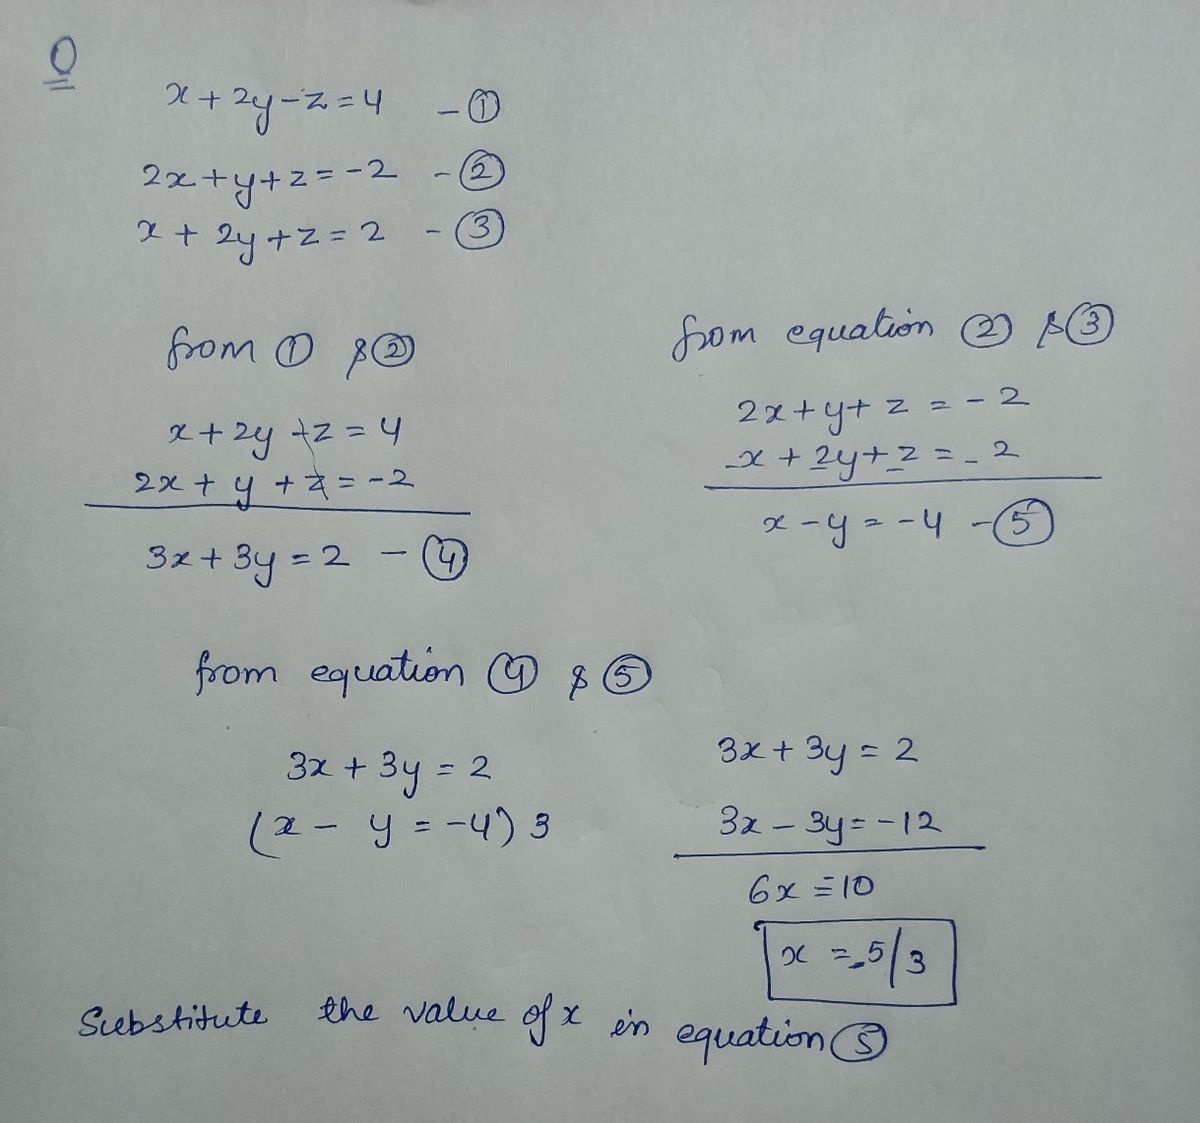 Q
x + 2y - z = 4 - ①
2x + y + z = -2 - ②
x + 2y + z = 2 - ③
from ① & ②
x + 2y - z = 4
2x + y + z = -2
3x + 3y = 2 - ④
from equation ② & ③
2x + y + z = -2
-x + 2y + z = - 2
x - y = -4 - ⑤
from equation ④ & ⑤
3x + 3y = 2
(x - y = -4) 3
3x + 3y = 2
3x - 3y = -12
6x = -10
x = -5/3
Substitute the value of x in equation ⑤